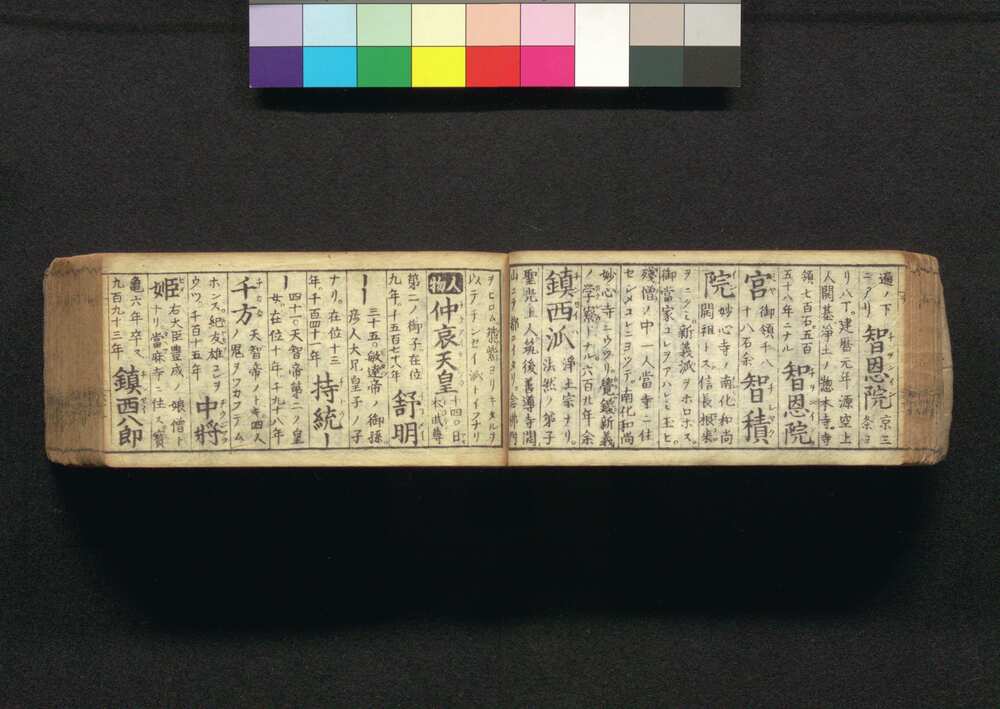 遍ノ下
ニアリ 智恩院 京三条ヨ
リ八丁。建暦元年。源空上
人開基浄土ノ惣本寺。寺
領七百石。五百
五十八年ニナル 智恩院
宮 御領千八
十八石余 智積
院 妙心寺ノ南化和尚
開祖トス信長根来
ヲニクミ新義派ヲホロホス。
御當家コレヲアハレヒ玉ヒ。
残僧ノ中一人當寺ニ住
セシメコレニヨツテ南化和尚
妙心寺ニウツリ覚鑁新義
ノ学寮トナル。六百廿年余
鎮西派 浄土宗ナリ。
法然ノ弟子
聖光上人筑後善導寺開
ヲヒロム筑紫ヨリキタルヲ
以テチンセイ派トイフナリ
人物 仲哀天皇 十四〇日
本武尊
第二ノ御子在位
九年。千五百七十八年 舒明
ー 三十五〇敏達帝ノ御孫
彦人大兄皇子ノ子
ナリ。在位十三
年。千百四十一年 持統ー
ー 四十一〇天智帝第二ノ皇
女。在位十年 千九十八年
千方 天智帝ノトキ四人
ノ鬼ヲツカフテム
ホンス。紀友雄コレヲ
ウツ。千百十五年 中將
姫 右大臣豊成ノ娘僧ト
ナリ當麻寺ニ住ス。寶
亀六年卒ス。
九百九十三年 鎮西八郎